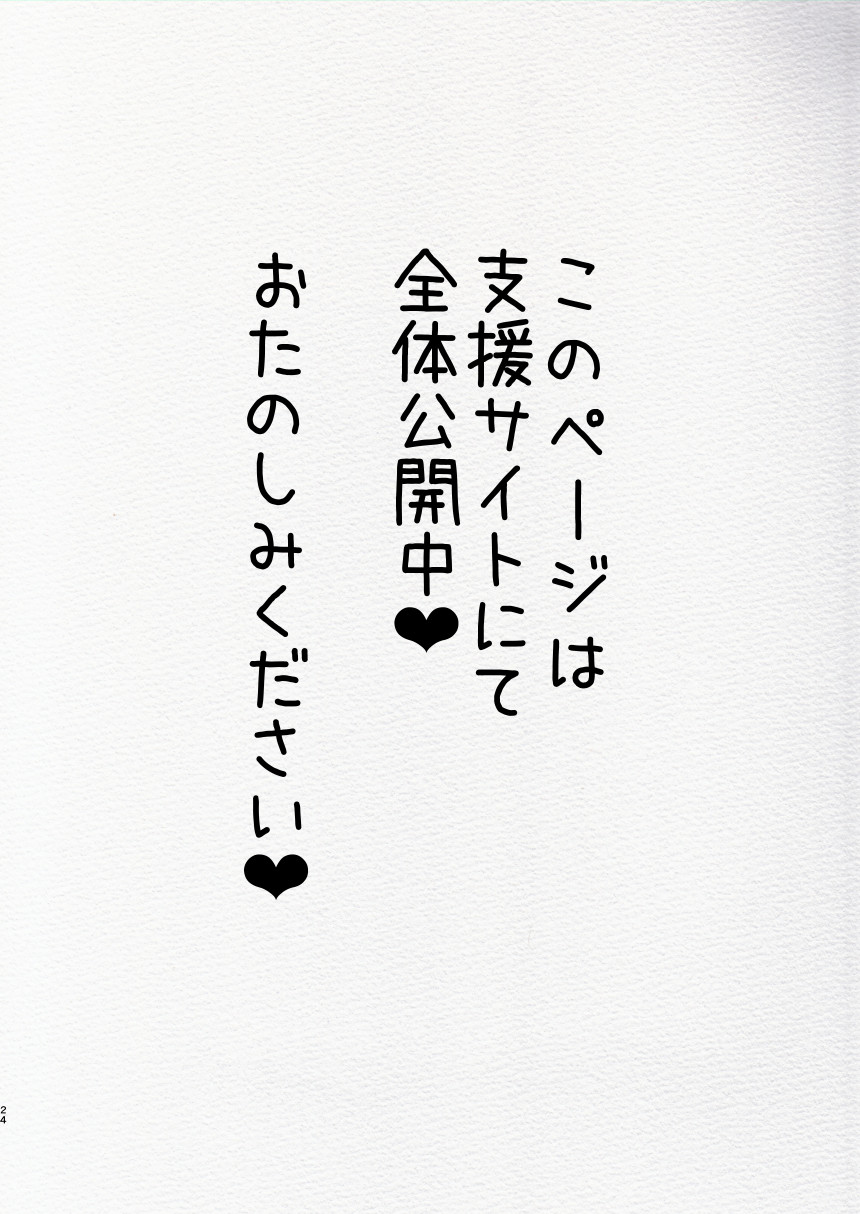 このページは
支援サイトにて
全体公開中❤
おたのしみください❤
24